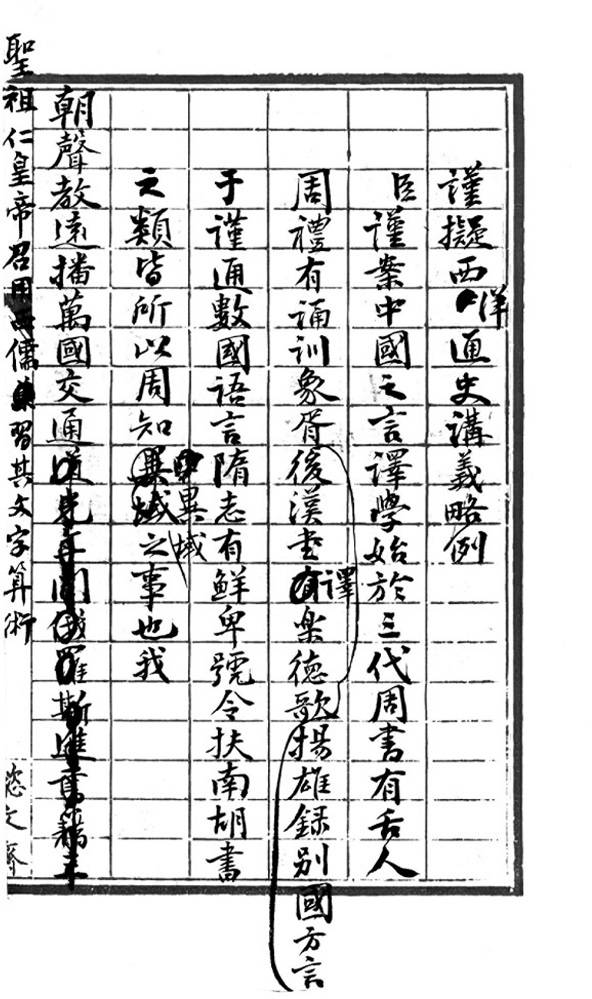 謹擬西洋通史講義略例
臣謹案中國之言譯學始於三代周書有舌人
周禮有誦訓象胥後漢書譯楽德歌揚雄録別國方言
于謹通數國語言隋志有鮮卑號令扶南胡書
之類皆所以周知異域之事也我
朝聲教遠播萬國交通道光年間俄羅斯進書籍
聖祖仁皇帝召用西儒習其文字算術
文齋